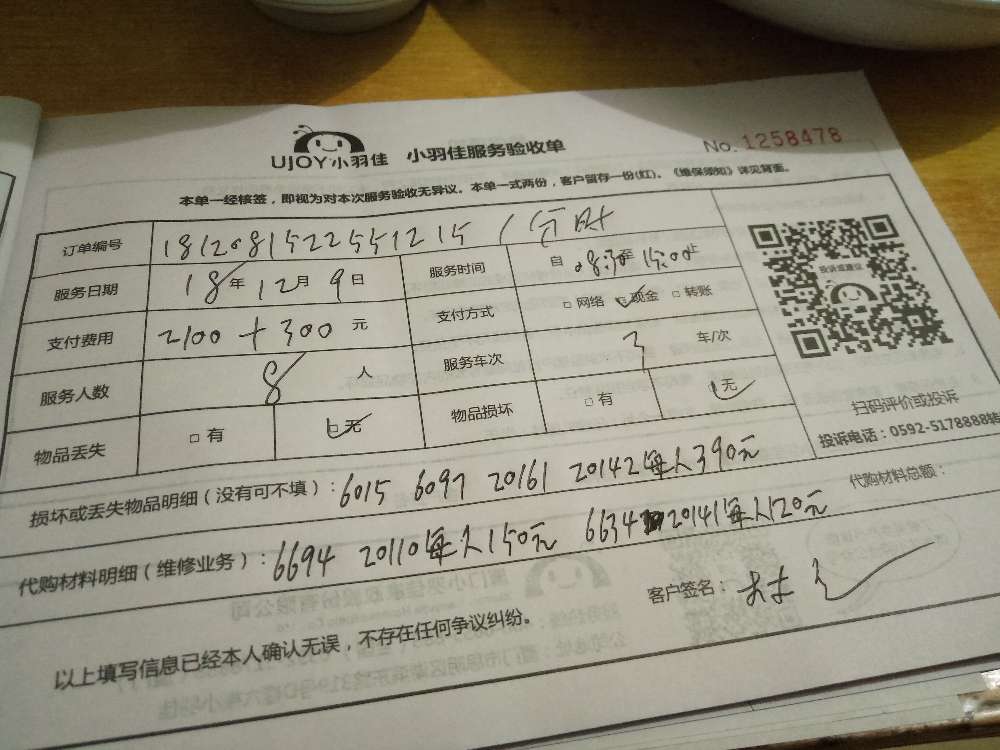 UJOY小羽佳 小羽佳服务验收单
No. 1258478
本单一经核签，即视为对本次服务验收无异议。本单一式两份，客户留存一份(红)。《维保须知》详见背面。
订单编号 18120815225551215
服务日期 18年12月9日 服务时间 自08:30至15:00止
支付费用 2100+300元 支付方式 □网络 □现金 □转账
服务人数 8人 服务车次 3车/次
物品丢失 □有 □无 物品损坏 □有 无
投诉或建议
扫码评价或投诉
投诉电话：0592-5178888转
损坏或丢失物品明细（没有可不填）：6015 6097 20161 20142每人390元
代购材料总额：
代购材料明细（维修业务）：6694 20110每人150元 6634 20141每人120元
客户签名：
以上填写信息已经本人确认无误，不存在任何争议纠纷。